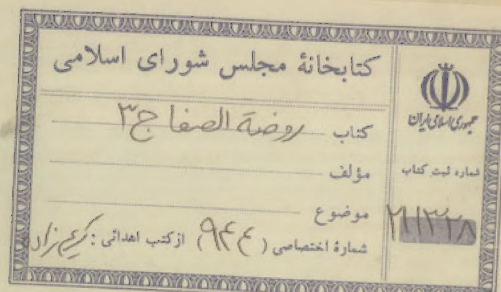 کتابخانهٔ مجلس شورای اسلامی
کتاب روضة الصفا ج ۳
مؤلف
موضوع
شمارهٔ اختصاصی (۹۴۴) از کتب اهدائی: کریم‌زاده
جمهوری اسلامی ایران
شماره ثبت کتاب
۲۱۱۳۲۸